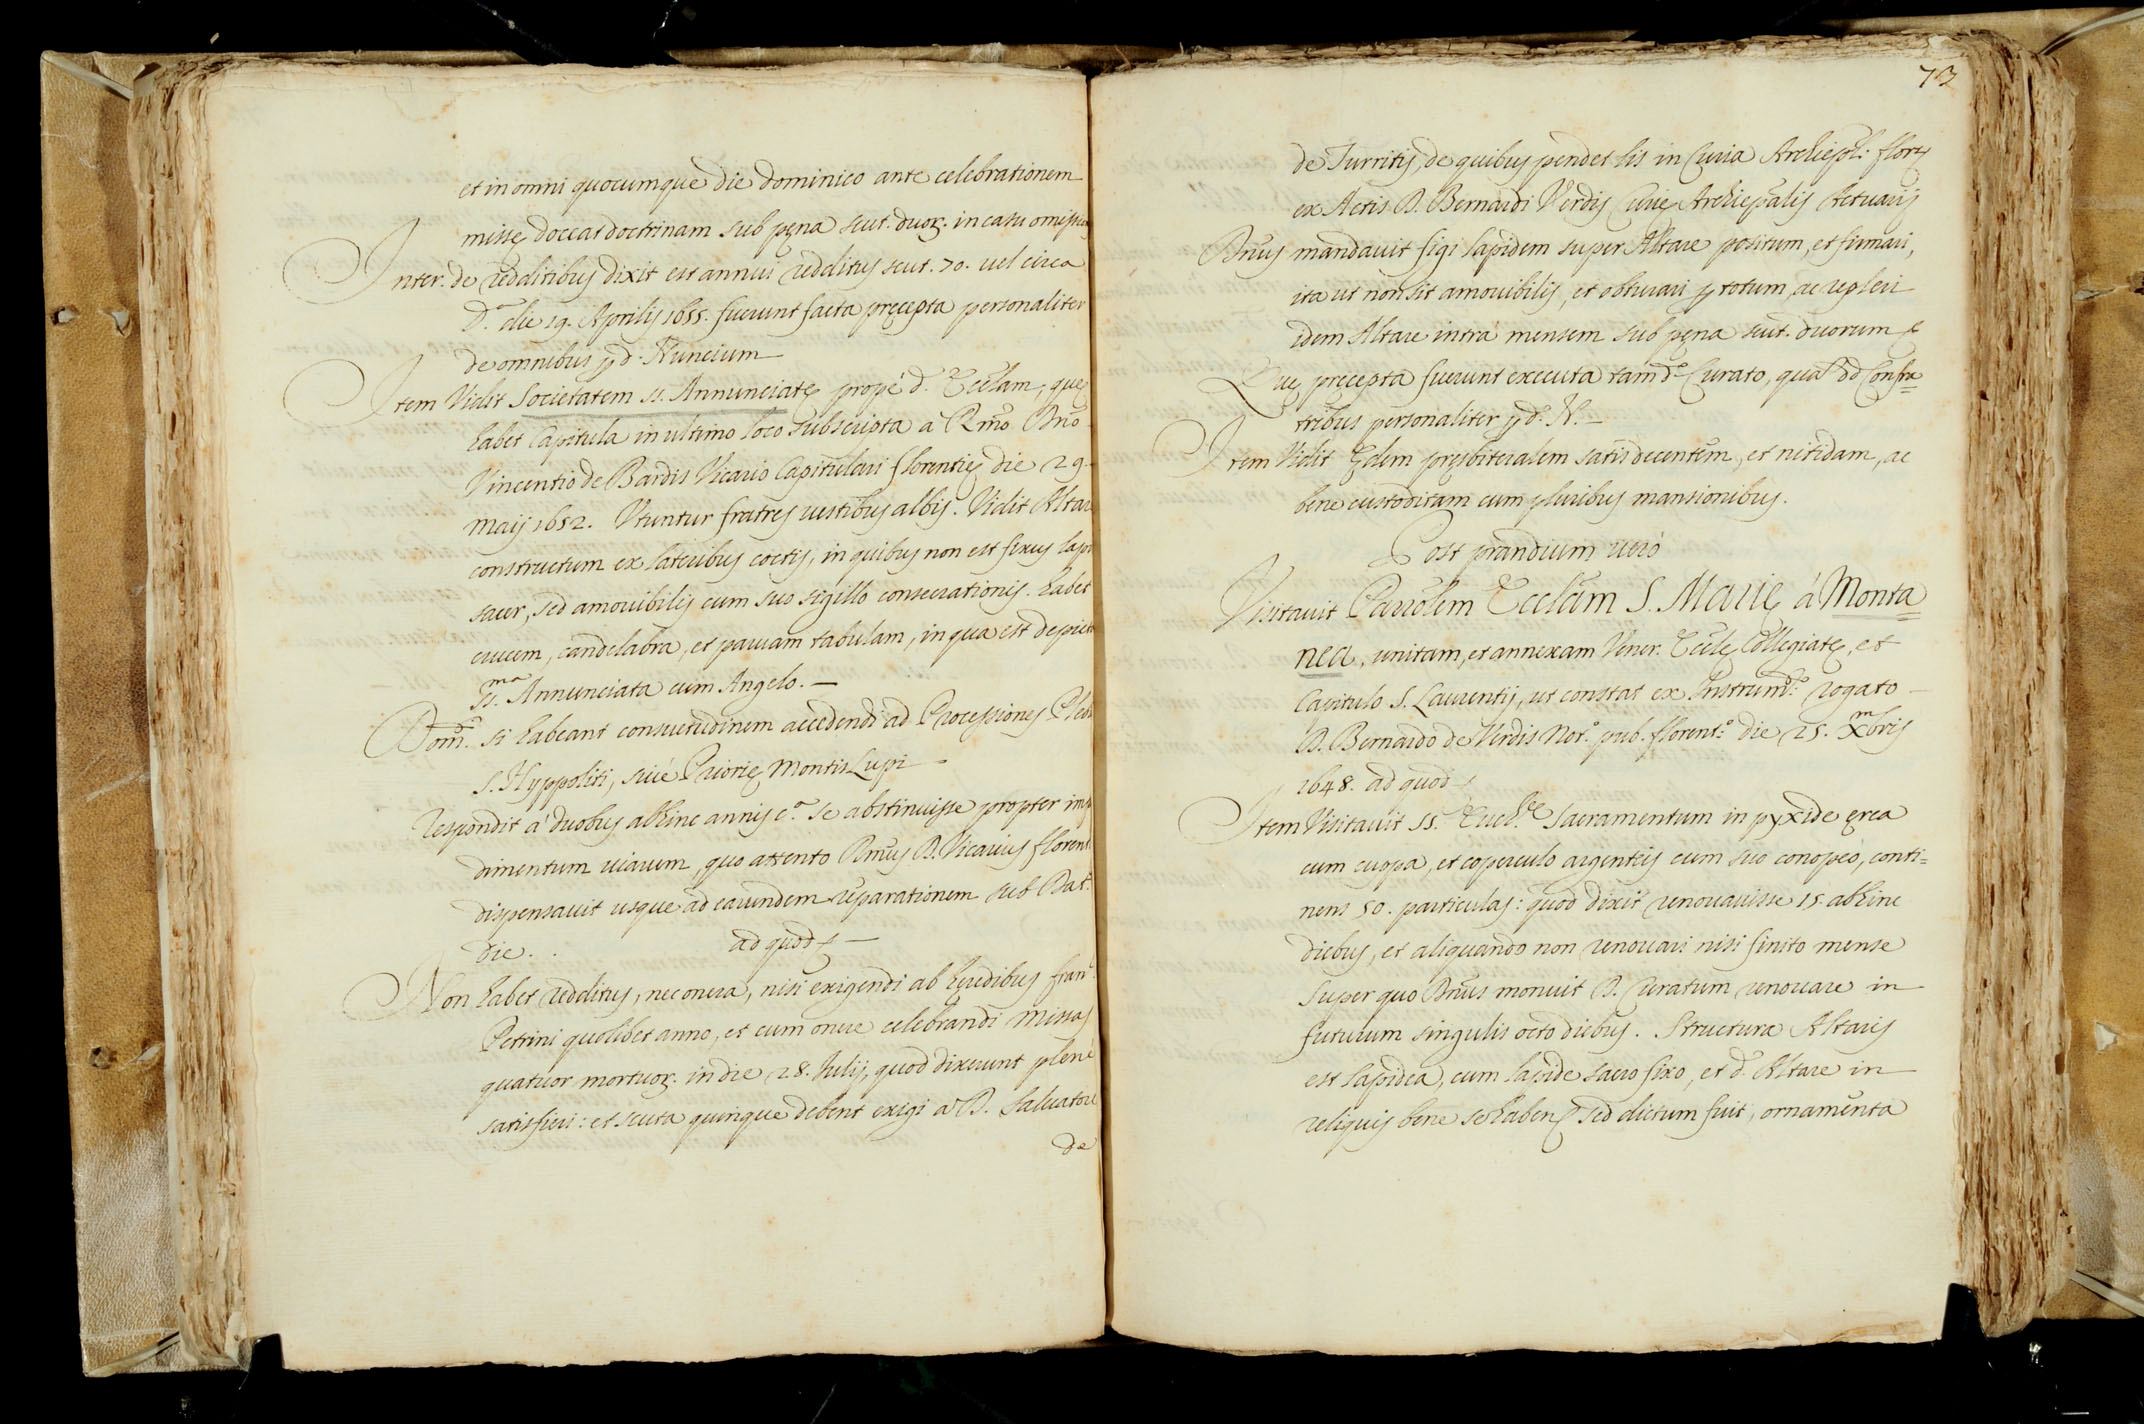 et in omni quocumque die dominico ante celebrationem
missę doceat doctrinam sub pęna scut. duoꝝ. in casu omiss
Inter. de redditibus dixit est annuus redditus scut. 70. vel circa
D.ᵃ die 19. Aprilis 1655. fuerunt facta pręcepta personaliter
de omnibus ꝑ d. Nuncium
Item Vidit Societatem SS. Annunciatę propè d. Ecclam, quę
habet Capitula in ultimo loco subscripta a Rmo Dno
Vincentio de Bardis Vicario Capitulari florentię die 29.
Maij 1652. Utuntur fratres vestibus albis. Vidit Altar
constructum ex lateribus coctis, in quibus non est fixus lapi
sacer, sed amovibilis cum suo sigillo consecrationis. habet
crucem, candelabra, et parvam tabulam, in qua est depict
SS.ᵐᵃ Annunciata cum Angelo.
si habeant consuetudinem accedendi ad Processiones Pleb
S. Hyppoliti, sivè Priorię Montis Lupi
Respondit à duobus abhinc annis c.ᵃ se abstinuisse propter imp
dimentum viarum, quo attento Rmus D. Vicarius florent
dispensavit usque ad earundem reparationem sub Dat.
die . . ad quod
Non habet redditus, nec onera, nisi exigendi ab hęredibus fran.
Petrini quolibet anno, et cum onere celebrandi missas
quatuor mortuoꝝ. in die 28. Julij, quod dixerunt plenè
satisfieri: et scuta quinque debent exigi a D. Salvatore
de
73
de Turritis, de quibus pendet lis in Curia Archiepŏl. flor.
ex Actis D. Bernardi Verdis Curię Archiepalis Actuarij
Dnus mandavit figi lapidem super Altare positum, et firmari,
ita ut non sit amovibilis, et obturari ꝑ totum, ac repleri
idem Altare intra mensem sub pęna scut. duorum
Quę pręcepta fuerunt executa tam d.ᵒ Curato, quā dd Confra=
tribus personaliter ꝑ d. N.
Item Vidit Ędem pręsbiteralem satis decentem, et nitidam, ac
bene custoditam cum pluribus mansionibus.
Post prandium verò
Visitavit Parrolem Ecclam S. Marię à Monta
nea, unitam, et annexam Vener. Eccle Collegiatę, et
Capitulo S. Laurentij, ut constat ex Instrum.ᵗᵒ rogato
D. Bernardo de Verdis Not.ᵒ pub. florent.ᵒ die 25. Xᵐbris
1648. ad quod
Item Visitavit SS. Euch.ᵉ Sacramentum in pyxide ęrea
cum cuppa, et coperculo argenteis cum suo conopeo, conti=
nens 50. particulas: quod dixit renovavisse 15. abhinc
diebus, et aliquando non renovari nisi finito mense
super quo Dnus monuit D. Curatum renovare in
futurum singulis octo diebus. Structura Altaris
est lapidea, cum lapide sacro fixo, et d. Altare in
reliquis bene se haben sed dictum fuit, ornamenta